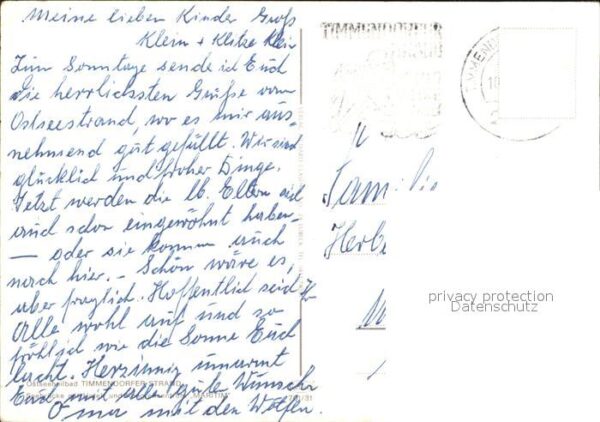 Meine lieben Kinder Groß
Klein + Klitze Klein
Zum Sonntage sende ich Euch
die herrlichsten Grüße vom
Ostseestrand, wo es mir aus-
nehmend gut gefällt. Wir sind
glücklich und froher Dinge.
Jetzt werden die lb. Eltern sich
auch schon eingewöhnt haben-
– oder sie kommen auch
nach hier. – Schön wäre es,
aber fraglich. Hoffentlich seid Ihr
Alle wohl auf und so
fröhlich wie die Sonne Euch
lacht. Herzinnig umarmt
Euch mit alle gute Wünsche
Oma mit den Wölfen.
Ostseeheilbad TIMMENDORFER STRAND
"MARITIM"
TIMMENDORFER
STRAND
TIMMENDO
Familie
Herbe
privacy protection
Datenschutz